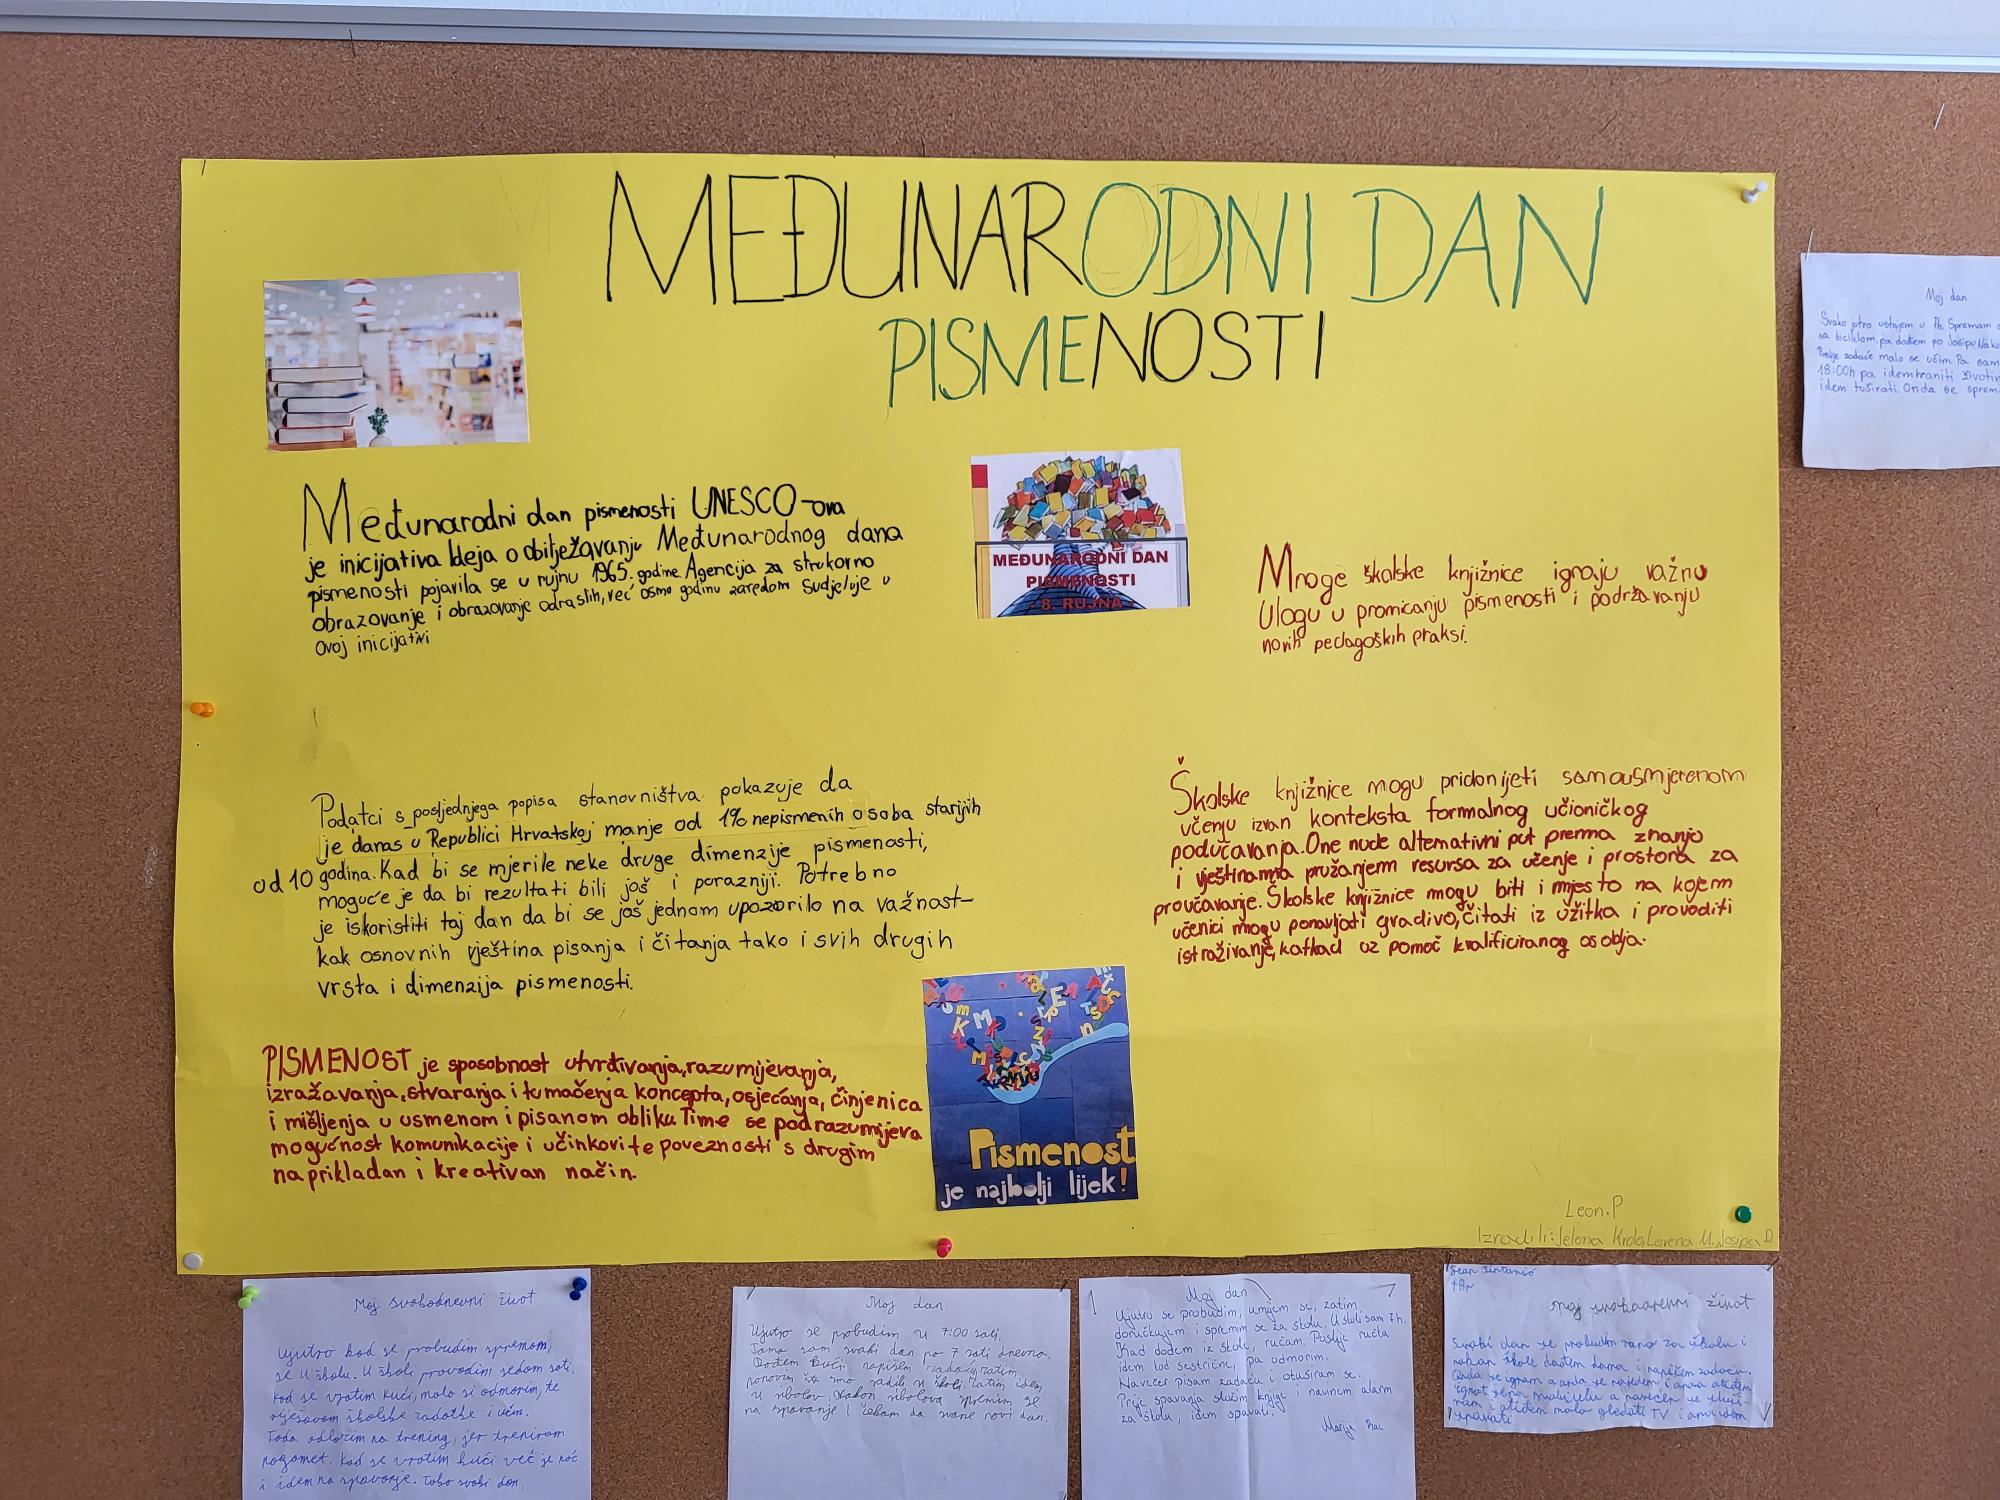 MEĐUNARODNI DAN
PISMENOSTI
Međunarodni dan pismenosti UNESCO-ova
je inicijativa Ideja o obilježavanju Međunarodnog dana
pismenosti pojavila se u rujnu 1965. godine. Agencija za strukovno
obrazovanje i obrazovanje odraslih, već osmu godinu zaredom sudjeluje u
ovoj inicijativi
MEĐUNARODNI DAN
PISMENOSTI
- 8. RUJNA -
Mnoge školske knjižnice igraju važnu
Ulogu u promicanju pismenosti i podržavanju
novih pedagoških praksi.
Podatci s posljednjega popisa stanovništva pokazuje da
je danas u Republici Hrvatskoj manje od 1% nepismenih osoba starijih
od 10 godina. Kad bi se mjerile neke druge dimenzije pismenosti,
moguće je da bi rezultati bili još i porazniji. Potrebno
je iskoristiti taj dan da bi se još jednom upozorilo na važnost-
kak osnovnih vještina pisanja i čitanja tako i svih drugih
vrsta i dimenzija pismenosti.
Školske knjižnice mogu pridonijeti samousmjerenom
učenju izvan konteksta formalnog učioničkog
podučavanja. One nude alternativni put prema znanju
i vještinama pružanjem resursa za učenje i prostora za
proučavanje. Školske knjižnice mogu biti i mjesto na kojem
učenici mogu ponavljati gradivo, čitati iz užitka i provoditi
istraživanje, katkad uz pomoć kvalificiranog osoblja.
PISMENOST je sposobnost utvrđivanja, razumijevanja,
izražavanja, stvaranja i tumačenja koncepta, osjećanja, činjenica
i mišljenja u usmenom i pisanom obliku. Time se podrazumijeva
mogućnost komunikacije i učinkovite poveznosti s drugim
na prikladan i kreativan način.
Pismenost
je najbolji lijek!
Leon.P
Izradili: Jelena Lorena M. Josipa D
Moj dan
Svako jutro ustajem u 7h. Spremam
sa biciklom pa dođem po Josipu. Nako
Poslije zadaće malo se učim. Pa sam
18:00h pa idem hraniti životin
idem tuširati. Onda se sprem
Moj svakodnevni život
Ujutro kad se probudim spremam
se u školu. U školi provodim sedam sati.
Kad se vratim kući, malo si odmorim, te
rješavam školske zadatke i učim.
Tada odlazim na trening, jer treniram
nogomet. Kad se vratim kući već je noć
i idem na spavanje. Tako svaki dan.
Moj dan
Ujutro se probudim u 7:00 sati.
Tamo sam svaki dan po 7 sati dnevno.
Dođem kući napišem zadaću, zatim
ponovim šta smo radili u školi. Zatim idem
u ribolov. Nakon ribolova spremim se
na spavanje i čekam da svane novi dan.
Moj dan
Ujutro se probudim, umijem se, zatim
doručkujem i spremim se za školu. U školi sam 7h.
Kad dođem iz škole, ručam. Poslije ručka
idem kod sestrične, pa odmorim.
Navečer pišem zadaću i otuširam se.
Prije spavanja složim knjige i navinem alarm
za školu, idem spavati.
Marija
Moj svakodnevni život
Svaki dan se probudim rano za školu i
nakon škole dođem doma i napišem zadaću.